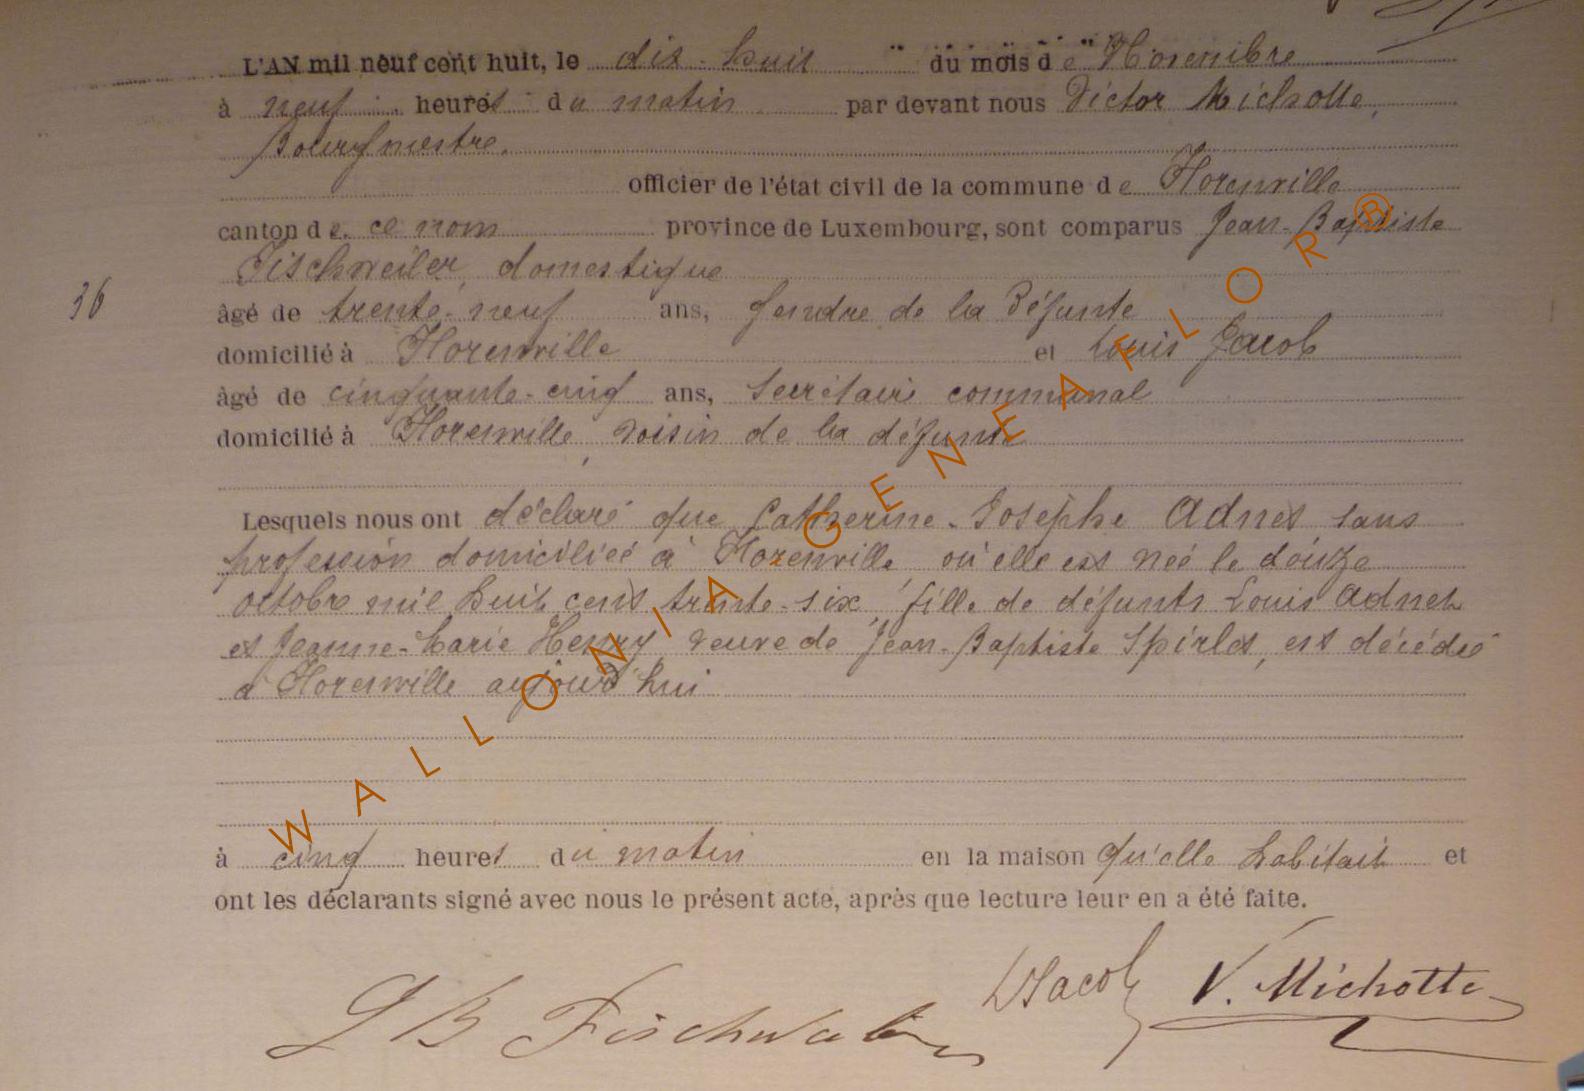 L'AN mil neuf cent huit, le dix-huit du mois de Novembre
à neuf heures du matin par devant nous Victor Michotte,
Bourgmestre.
officier de l'état civil de la commune de Florenville
canton de ce nom province de Luxembourg, sont comparus Jean-Baptiste
Fischweiler, domestique
36
âgé de trente-neuf ans, gendre de la défunte
domicilié à Florenville et Louis Jacob
âgé de cinquante-cinq ans, Secrétaire communal
domicilié à Florenville, voisin de la défunte
Lesquels nous ont déclaré que Catherine-Josèphe Adnet sans
profession domiciliée à Florenville où elle est née le douze
octobre mil huit cent trente-six, fille de défunts Louis Adnet
et Jeanne-Marie Henry veuve de Jean-Baptiste Spirlet, est décédée
à Florenville aujourd'hui
à cinq heures du matin en la maison qu'elle habitait et
ont les déclarants signé avec nous le présent acte, après que lecture leur en a été faite.
LJacob V. Michotte
J B Fischweiler
WALLONIA GENEAFLOR ®